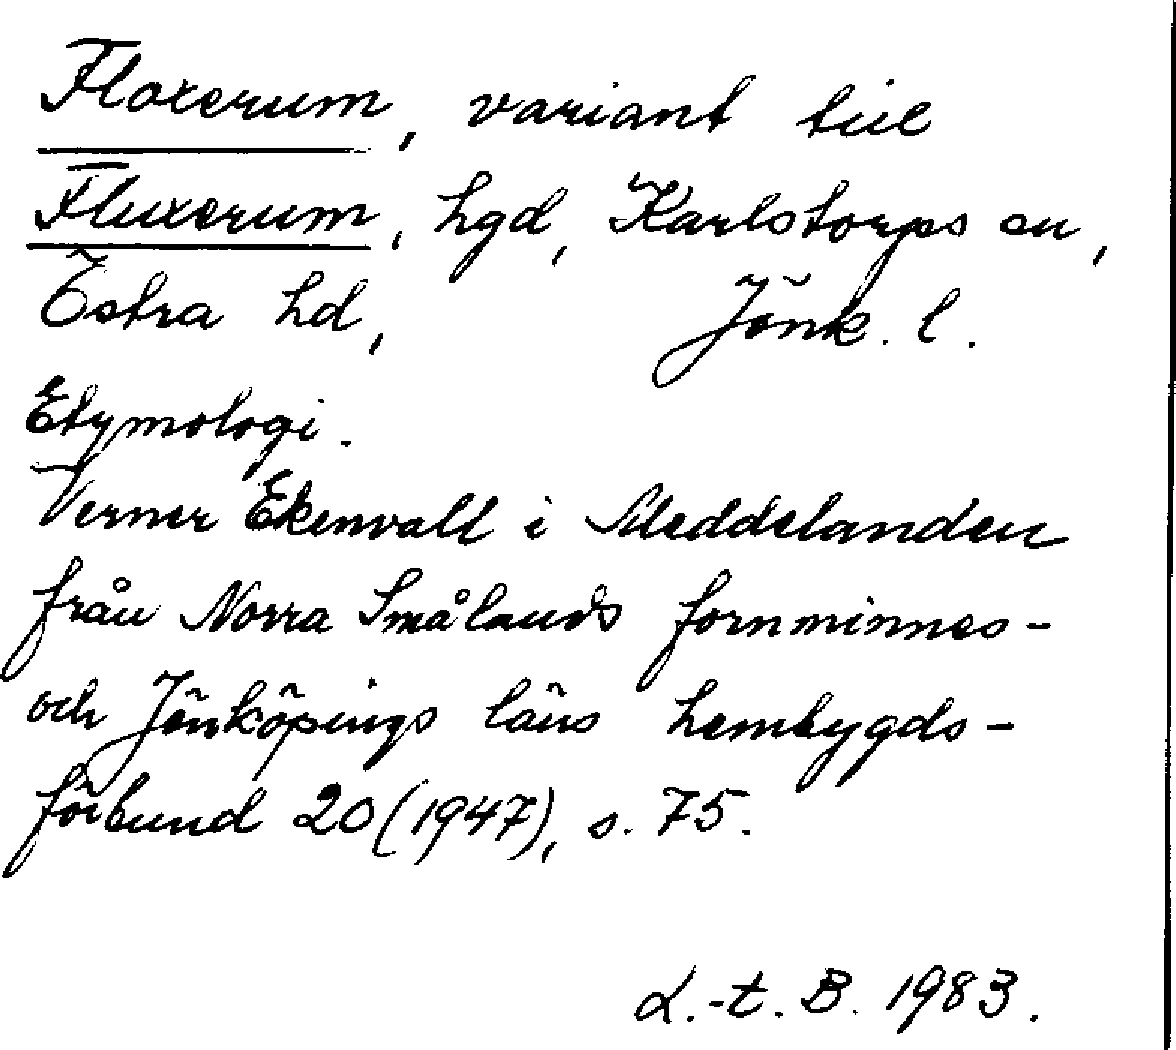 Floxerum, variant till
Fluxerum, hgd, Karlstorps sn,
Östra hd, Jönk. l.
Etymologi.
Verner Ekenvall i Meddelanden
från Norra Smålands fornminnes-
och Jönköpings läns hembygds-
förbund 20 (1947), s. 75.
L.-t. B. 1983.